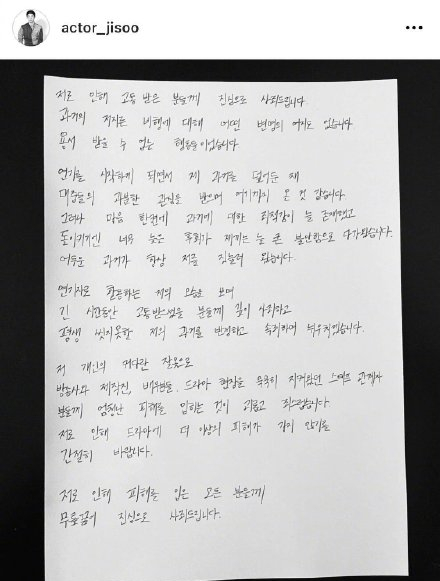 actor_jisoo
저로 인해 고통 받은 분들께 진심으로 사죄드립니다
과거의 저지른 비행에 대해 어떤 변명의 여지도 없습니다.
용서 받을 수 없는 행동들이었습니다
연기를 시작하게 되면서 제 과거를 덮어둔 채
대중들의 과분한 관심을 받으며 여기까지 온 것 같습니다
그러나 마음 한켠에 과거에 대한 죄책감이 늘 존재했고
돌이키기엔 너무 늦은 후회가 제게는 늘 큰 불안함으로 다가왔습니다.
어두운 과거가 항상 저를 짓눌러 왔습니다.
연기자로 활동하는 저의 모습을 보며
긴 시간동안 고통받으셨을 분들께 깊이 속죄하고
평생 씻지못할 저의 과거를 반성하고 속죄하며 뉘우치겠습니다.
저 개인의 커다란 잘못으로
방송사와 제작진, 배우분들, 드라마 현장을 묵묵히 지켜왔던 스태프 관계자
분들께 엄청난 피해를 입히는 것이 괴롭고 죄스럽습니다
저로 인해 드라마에 더 이상의 피해가 가지 않기를
간절히 바랍니다.
저로 인해 피해를 입은 모든 분들께
무릎꿇어 진심으로 사죄드립니다.